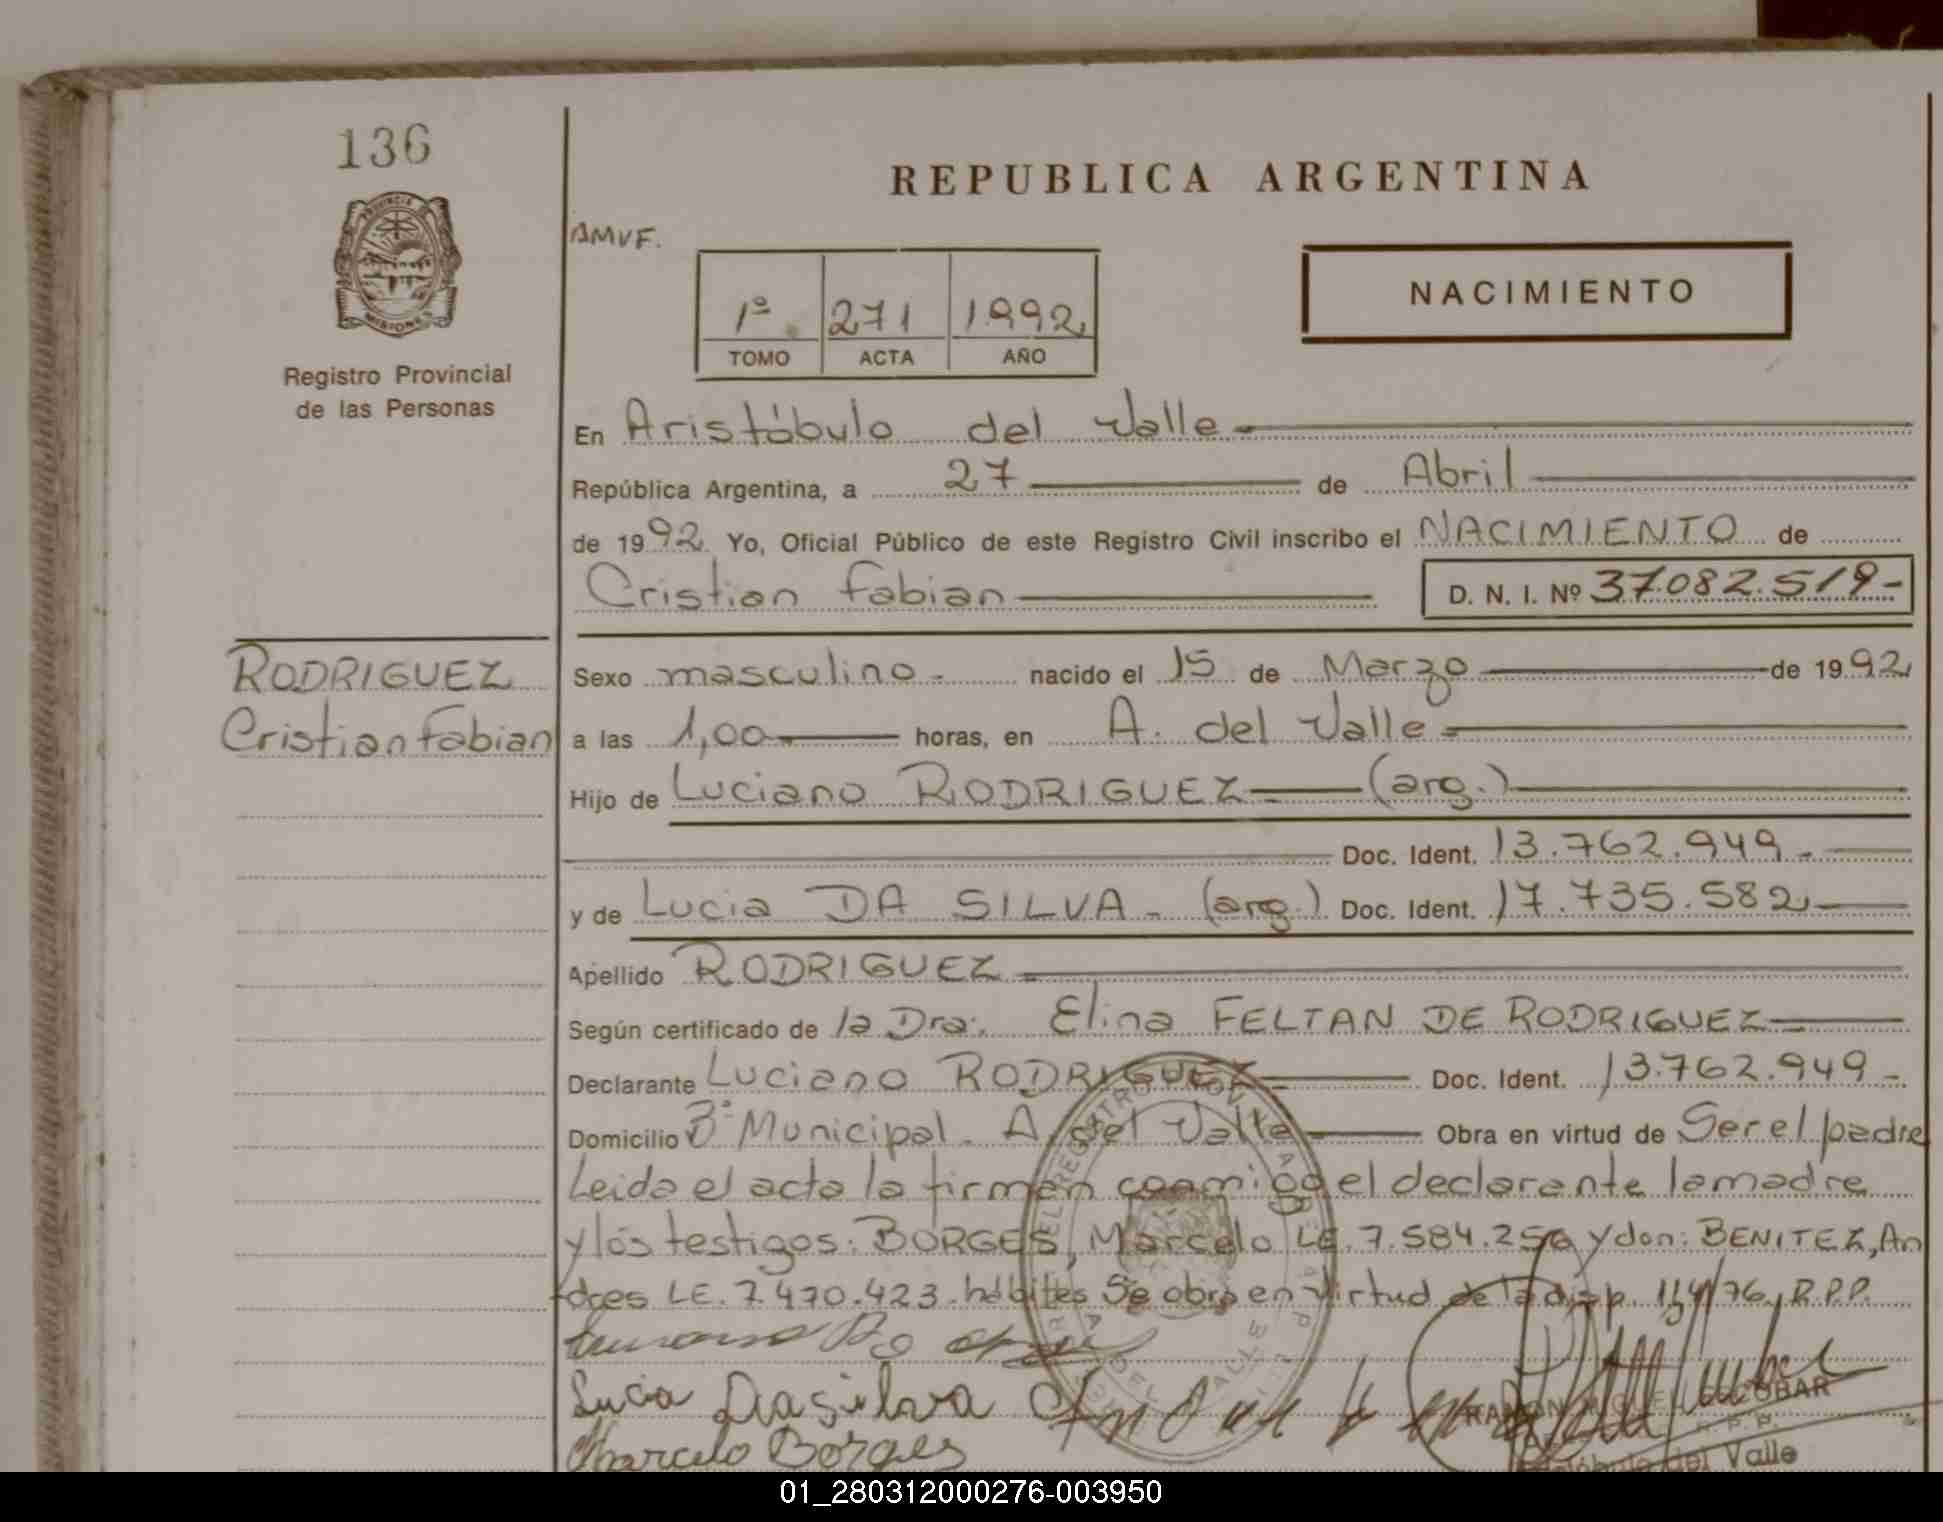 136
PROVINCIA DE
MISIONES
Registro Provincial
de las Personas
REPUBLICA ARGENTINA
AMVF.
1º 271 1992
TOMO ACTA AÑO
NACIMIENTO
En Aristóbulo del Valle
República Argentina, a 27 de Abril
de 1992 Yo, Oficial Público de este Registro Civil inscribo el NACIMIENTO de
Cristian Fabian D. N. I. Nº 37.082.519-
RODRIGUEZ
Cristian Fabian
Sexo masculino. nacido el 15 de Marzo de 1992
a las 1,00 horas, en A. del Valle
Hijo de Luciano RODRIGUEZ (arg.)
Doc. Ident. 13.762.949.
y de Lucia DA SILVA. (arg.) Doc. Ident. 17.735.582
Apellido RODRIGUEZ
Según certificado de la Dra. Elina FELTAN DE RODRIGUEZ
Declarante Luciano RODRIGUEZ Doc. Ident. 13.762.949-
Domicilio Bº Municipal. A. del Valle Obra en virtud de Ser el padre
Leida el acta la firman conmigo el declarante la madre
y los testigos: BORGES, Marcelo LE. 7.584.256 y don: BENITEZ, An
dres LE. 7.470.423. hábiles Se obra en virtud de la disp. 114/76, R.P.P.
Lucia Dasilva
RAMON MIGUEL ESCOBAR
R. P. P.
Marcelo Borges
Aristóbulo del Valle
01_280312000276-003950